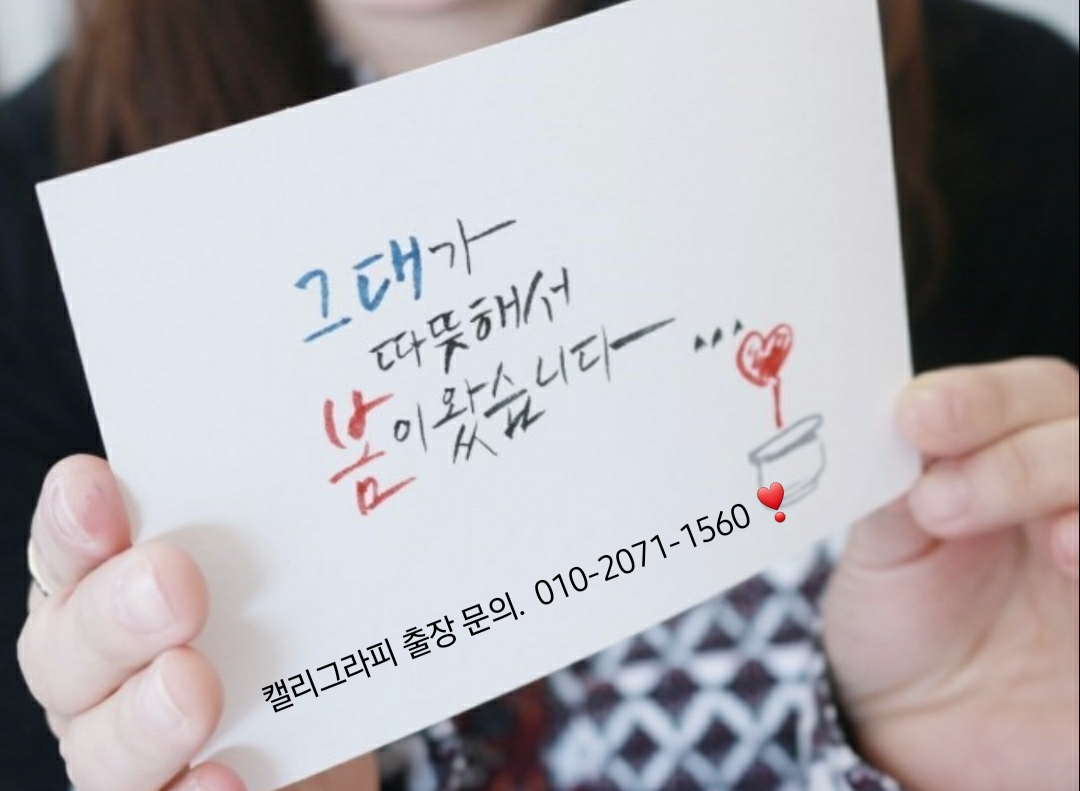 그대가
따뜻해서
봄이왔습니다
캘리그라피 출장 문의. 010-2071-1560